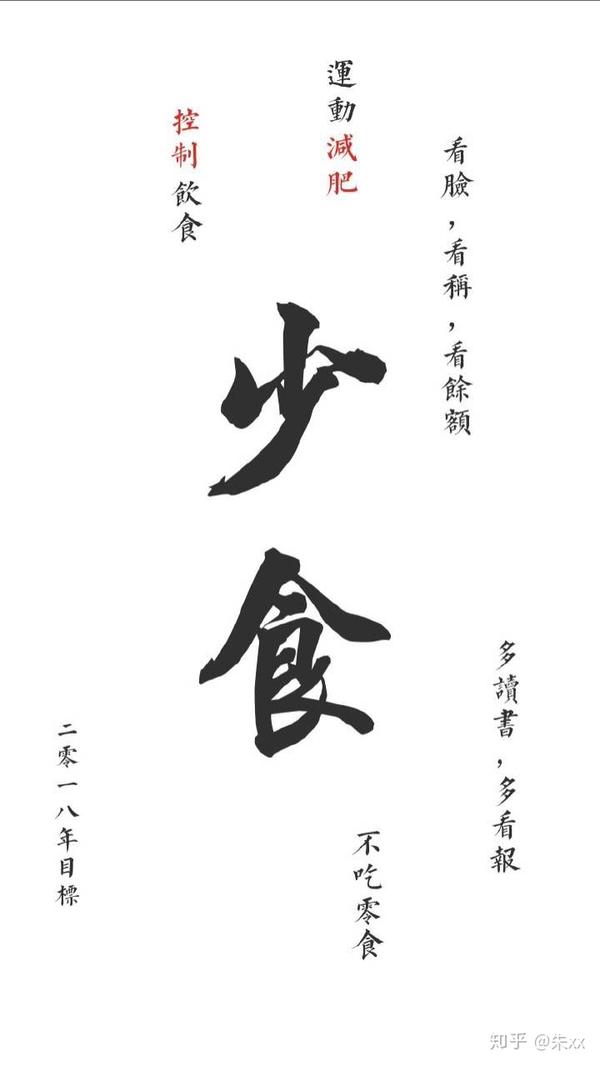 看臉，看稱，看餘額
運動減肥
控制飲食
少食
多讀書，多看報
不吃零食
二零一八年目標
知乎 @朱xx